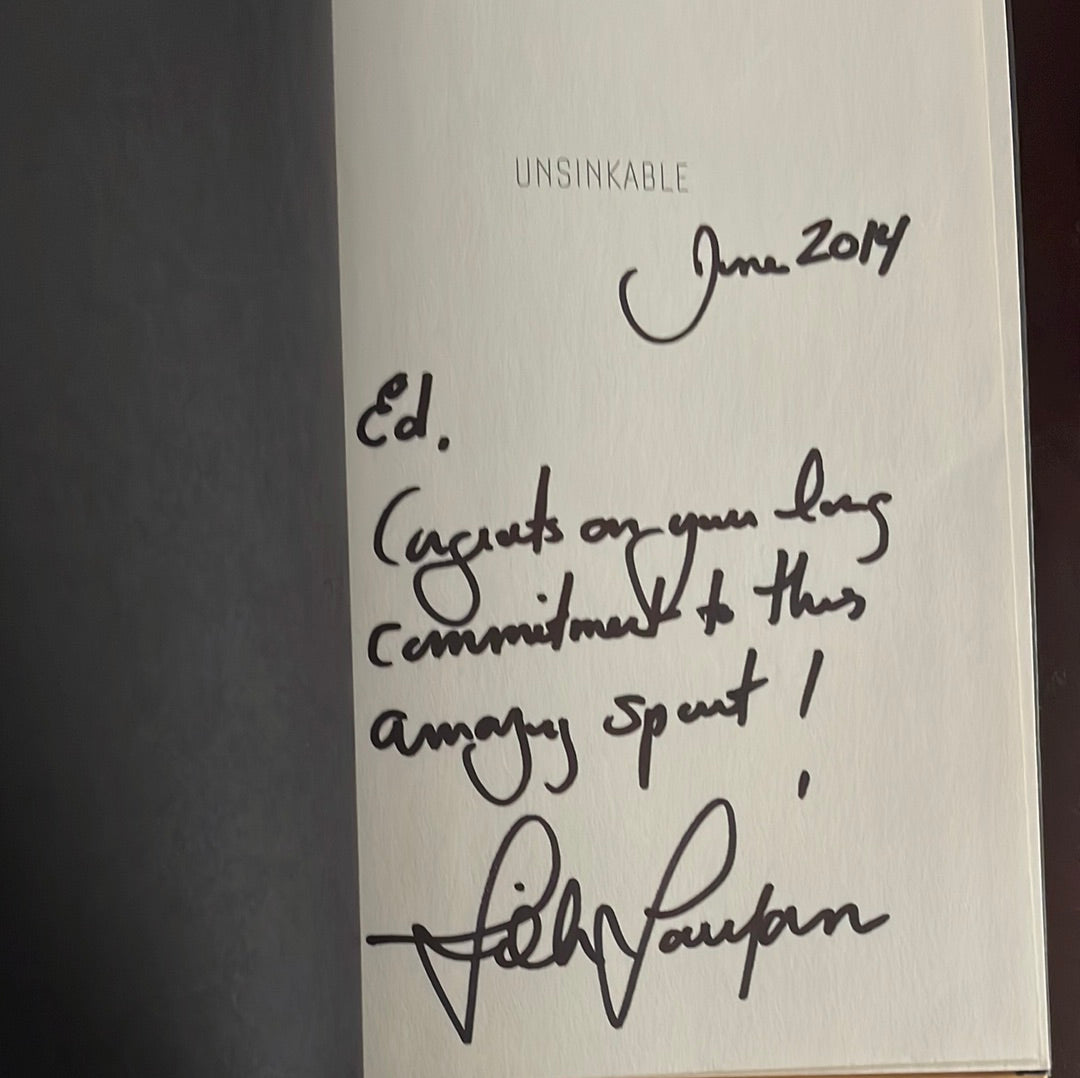 UNSINKABLE
June 2014
Ed.
Congrats on your long
commitment to this
amazing sport!
Silken Laumann